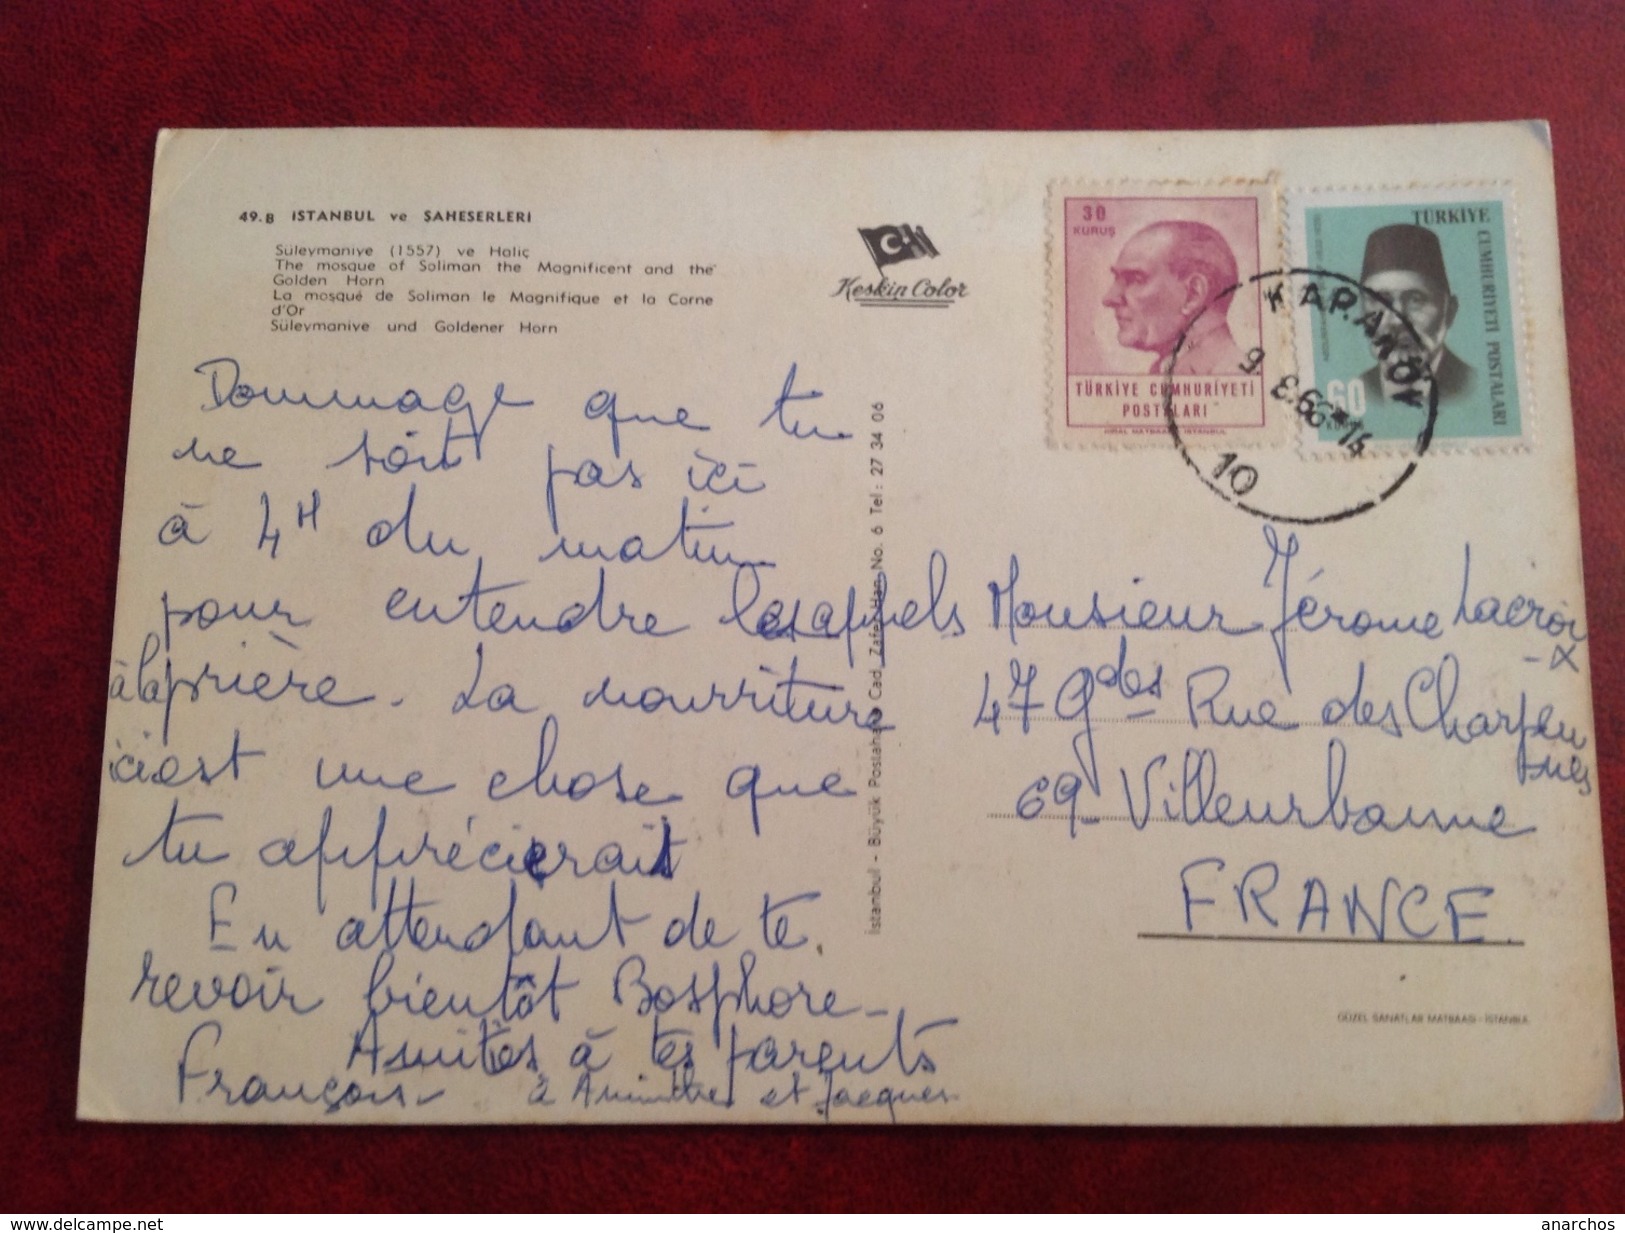 49.B ISTANBUL ve SAHESERLERI
Süleymaniye (1557) ve Haliç
The mosque of Soliman the Magnificent and the
Golden Horn
La mosqué de Soliman le Magnifique et la Corne
d'Or
Süleymaniye und Goldener Horn
Keskin Color
30
KURUŞ
TÜRKİYE CUMHURİYETİ
POSTALARI
TÜRKİYE CUMHURİYETİ POSTALARI
60
KAP.
9.
66
14
10
Dommage que tu
ne soit pas ici
à 4H du matin
pour entendre les appels
à la prière. La nourriture
ici est une chose que
tu apprécierait
En attendant de te
revoir bientôt Bosphore-
Amitiés à tes parents
François à et Jacques
İstanbul - Büyük Postahane Cad. Zafer Han No. 6 Tel: 27 34 06
Monsieur Jérôme Lacroi
-x
47 Gdes Rue des Charpen
nes
69- Villeurbanne
FRANCE.
GÜZEL SANATLAR MATBAASI - İSTANBUL
www.delcampe.net
anarchos